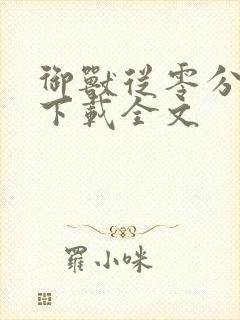 御獸從零分
下載全文
羅小咪